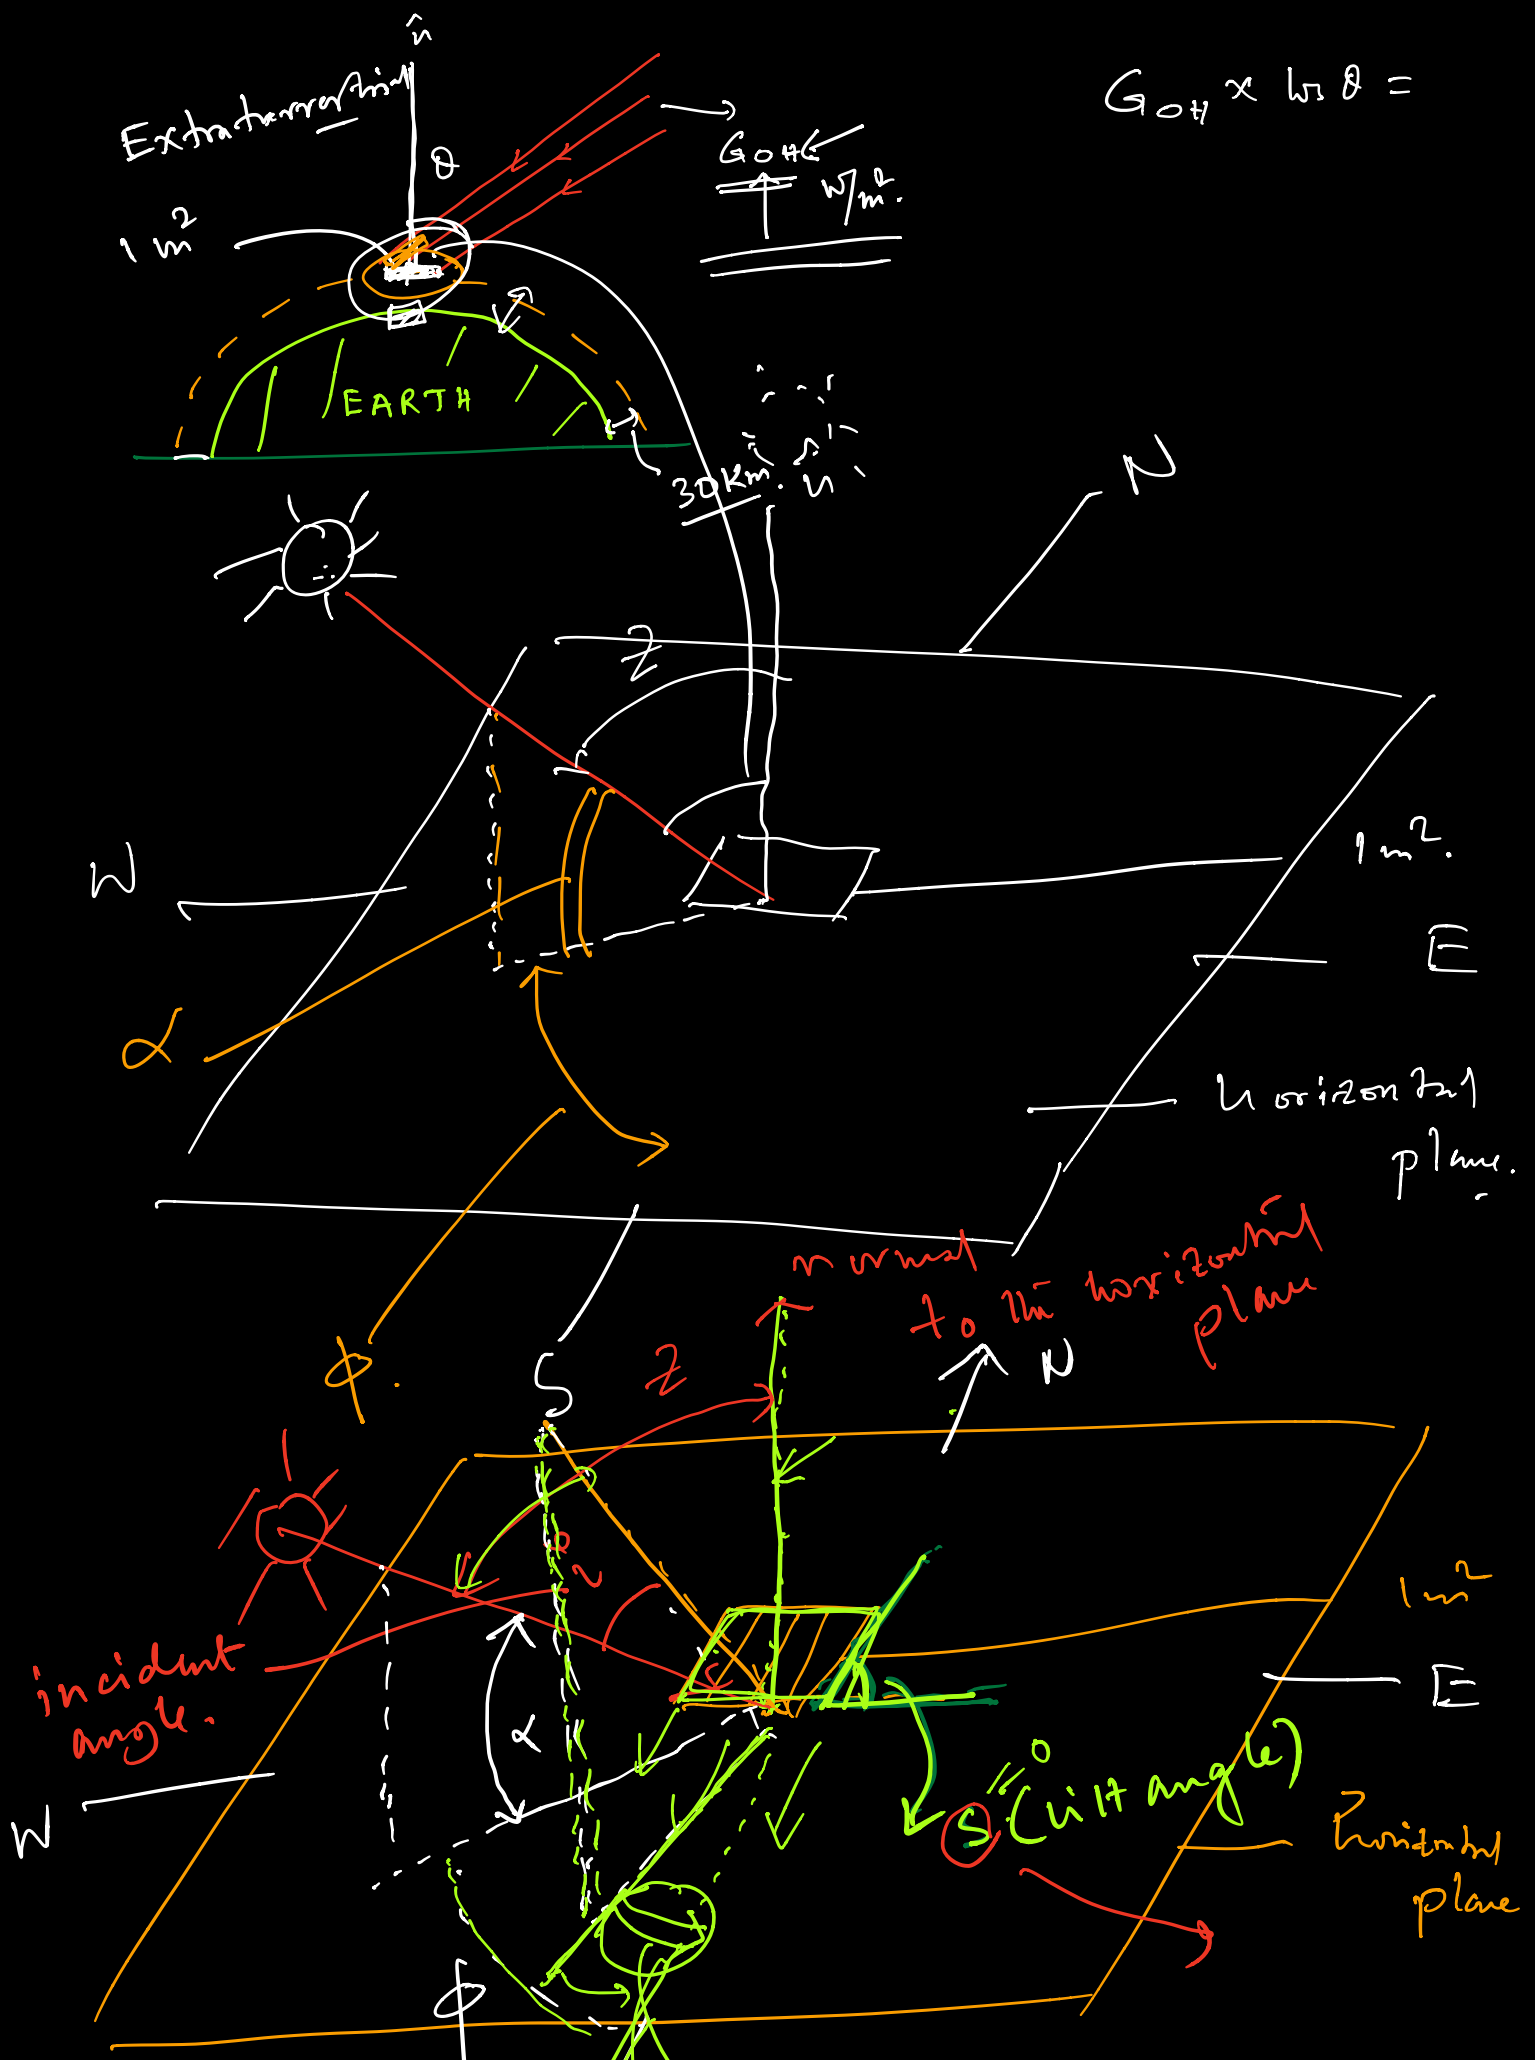 n̂
Extraterrestrial
G_OH × cos θ =
θ
G_OH
W/m².
1 m²
EARTH
30 Km.
n
N
Z
1 m².
W
E
α
horizontal
plane.
normal
to the horizontal
plane
φ.
S
Z
N
1 m²
incident
angle.
α
E
0
S (tilt angle)
W
horizontal
plane
φ